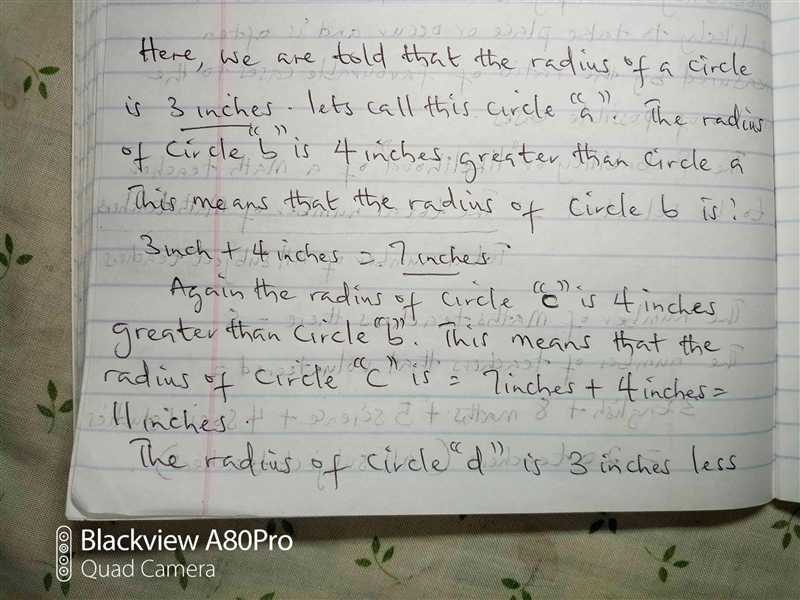 Here, we are told that the radius of a circle
is 3 inches. lets call this circle "a". The radius
of circle "b" is 4 inches greater than circle a
This means that the radius of circle b is:
3 inch + 4 inches = 7 inches.
Again the radius of circle "c" is 4 inches
greater than circle "b". This means that the
radius of circle "c" is = 7 inches + 4 inches =
11 inches.
The radius of circle "d" is 3 inches less
Blackview A80Pro
Quad Camera